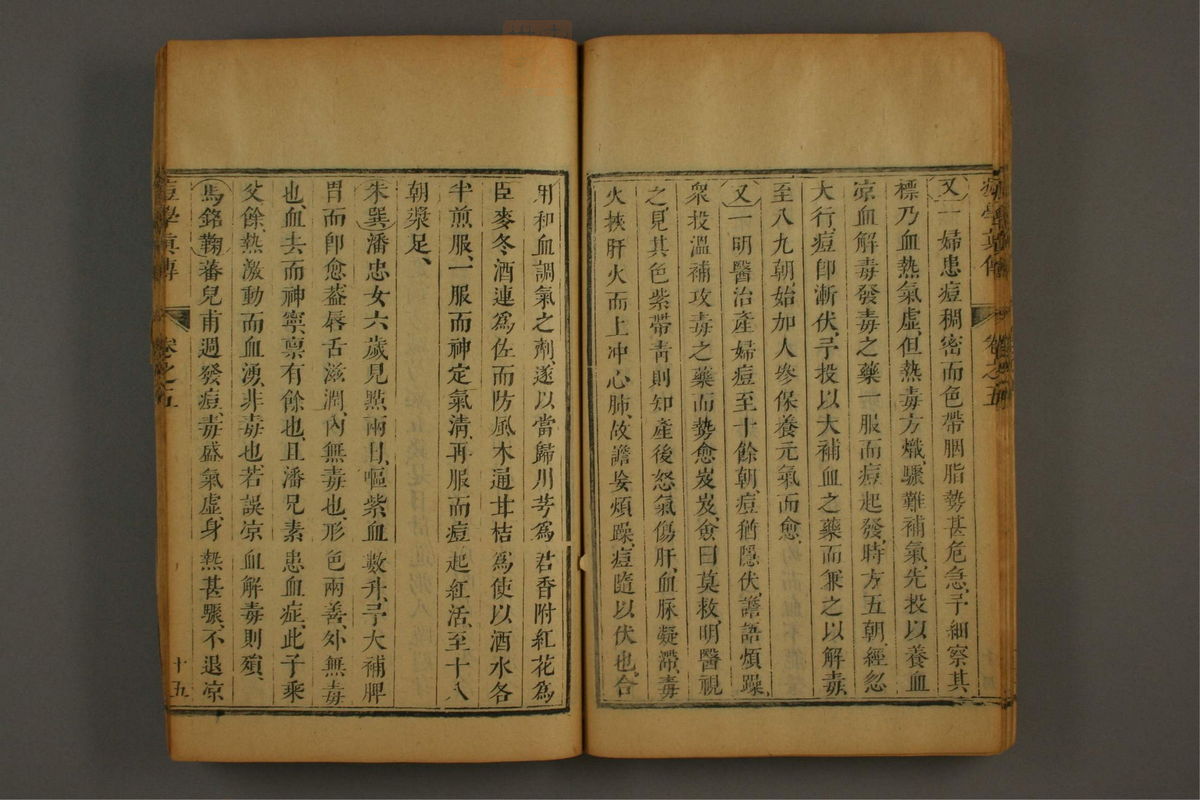 痘學真傳 卷之五
又一婦患痘稠密而色帶胭脂勢甚危急予細察其
標乃血熱氣虛但熱毒方熾驟難補氣先投以養血
凉血解毒發毒之藥一服而痘起發時方五朝經忽
大行痘即漸伏予投以大補血之藥而兼之以解毒
至八九朝始加人參保養元氣而愈
又一明醫治產婦痘至十餘朝痘猶隱伏譫語煩躁
衆投溫補攻毒之藥而勢愈岌岌僉曰莫救明醫視
之見其色紫帶靑則知產後怒氣傷肝血脉凝滯毒
火挾肝火而上冲心肺故譫妄煩躁痘隨以伏也合
用和血調氣之劑遂以當歸川芎爲君香附紅花爲
臣麥冬酒連爲佐而防風木通甘桔爲使以酒水各
半煎服一服而神定氣清再服而痘起紅活至十八
朝漿足
朱巽潘忠女六歲見點兩日嘔紫血數升予大補脾
胃而即愈蓋唇舌滋潤內無毒也形色兩善外無毒
也血去而神寧禀有餘也且潘兄素患血症此子乘
父餘熱激動而血湧非毒也若誤凉血解毒則殞
馬銘鞠蕃兒甫週發痘毒盛氣虛身熱甚驟不退凉
痘學真傳 卷之五 十五